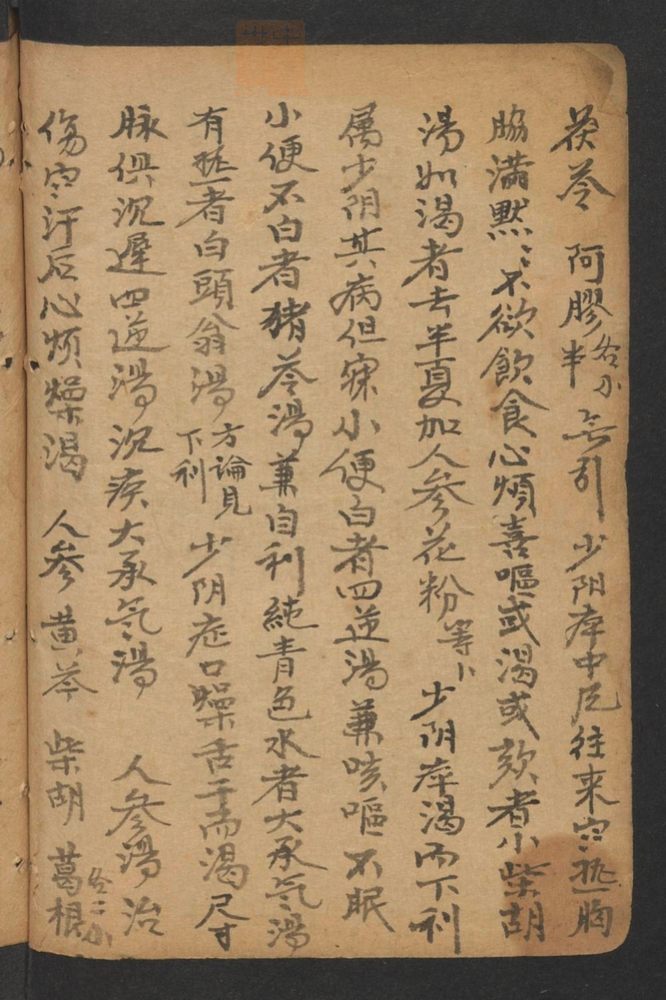 茯苓 阿膠各小半 無引 少阳𤵜中风往来寒𤍠胸
脇滿默〻不欲飲食心煩喜嘔或渴或欬者小柴胡
湯如渴者去半夏加人參花粉等小 少阴𤵜渴而下利
属少阴其病但寐小便白者四逆湯兼咳嘔不眠
小便不白者猪苓湯兼自利純青色水者大承氣湯
有𤍠者白頭翁湯方論見下利 少阴症口燥舌干而渴尺寸
脉俱沉遲四逆湯沉疾大承氣湯 人參湯治
傷寒汗后心煩燥渴 人參 黄芩 柴胡 葛根各二小